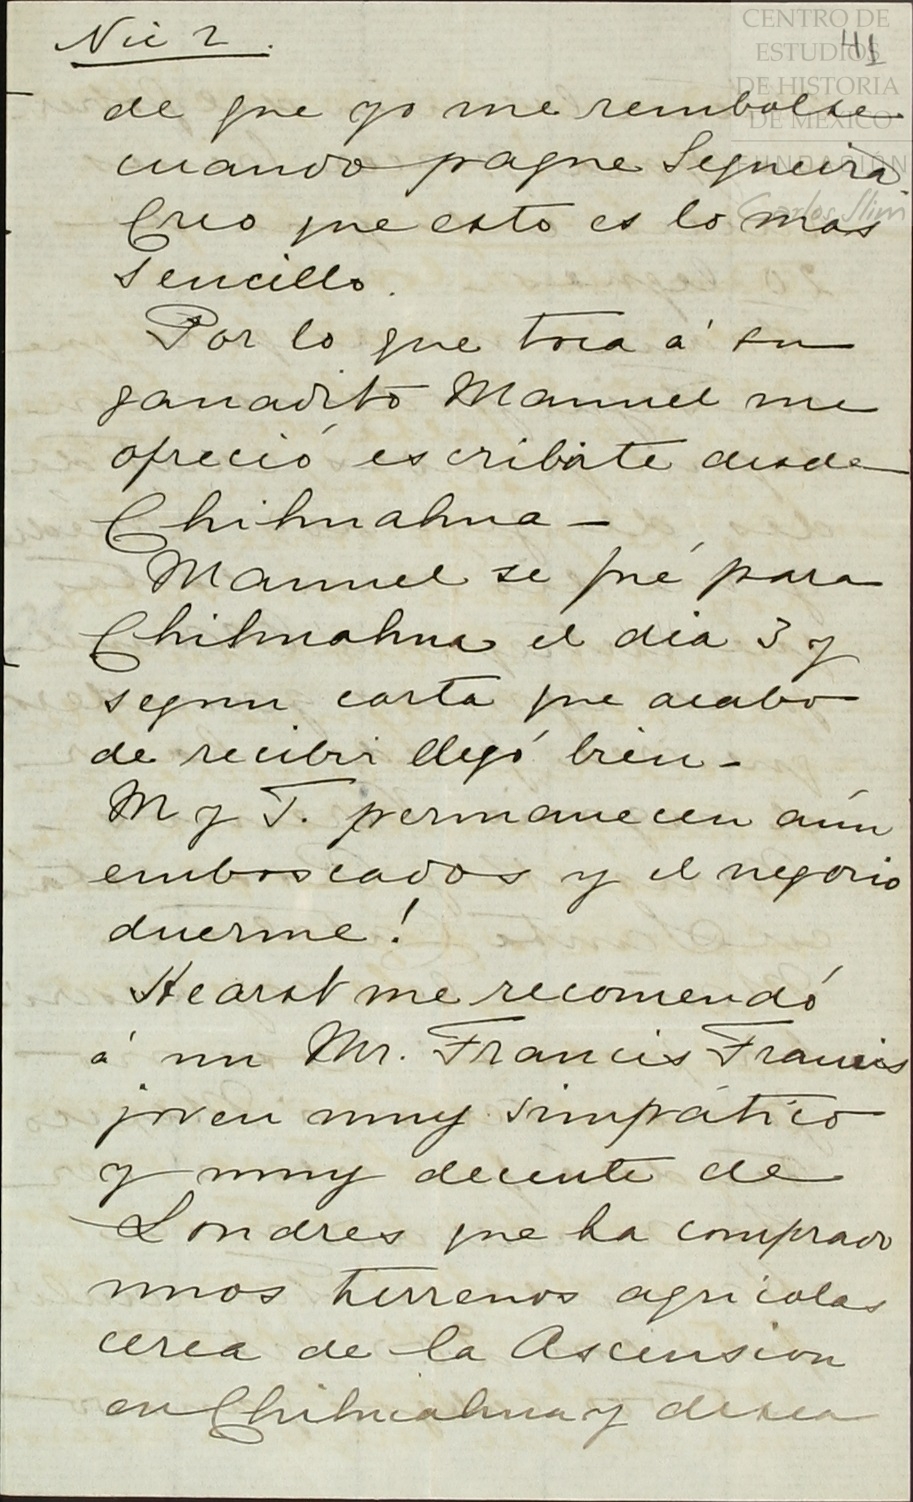 Nic 2.
41
CENTRO DE
ESTUDIOS
DE HISTORIA
DE MEXICO
FUNDACIÓN
Carlos Slim
de que yo me rembolse
cuando pague Segueira.
Creo que esto es lo mas
sencillo.
Por lo que toca á su
ganadito Manuel me
ofreció escribirte desde
Chihuahua —
Manuel se fué para
Chihuahua el dia 3 y
segun carta que acabo
de recibir llegó bien —
M y T. permanecen aún
emboscados y el negocio
duerme!
Hearst me recomendó
á un Mr. Francis Francis
joven muy simpático
y muy decente de
Londres que ha comprado
unos terrenos agricolas
cerca de la Ascension
en Chihuahua y desea